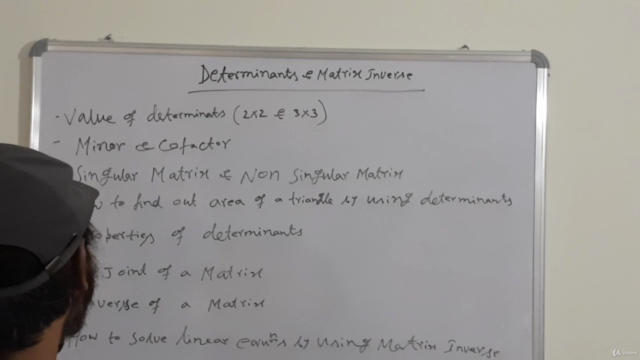 Determinants & Matrix Inverse
- Value of determinats (2x2 & 3x3)
- Minor & Cofactor
Singular Matrix & Non Singular Matrix
to find out area of a triangle by using determinants
operties of determinants
Joint of a Matrix
verse of a Matrix
How to solve linear equns by using Matrix Inverse